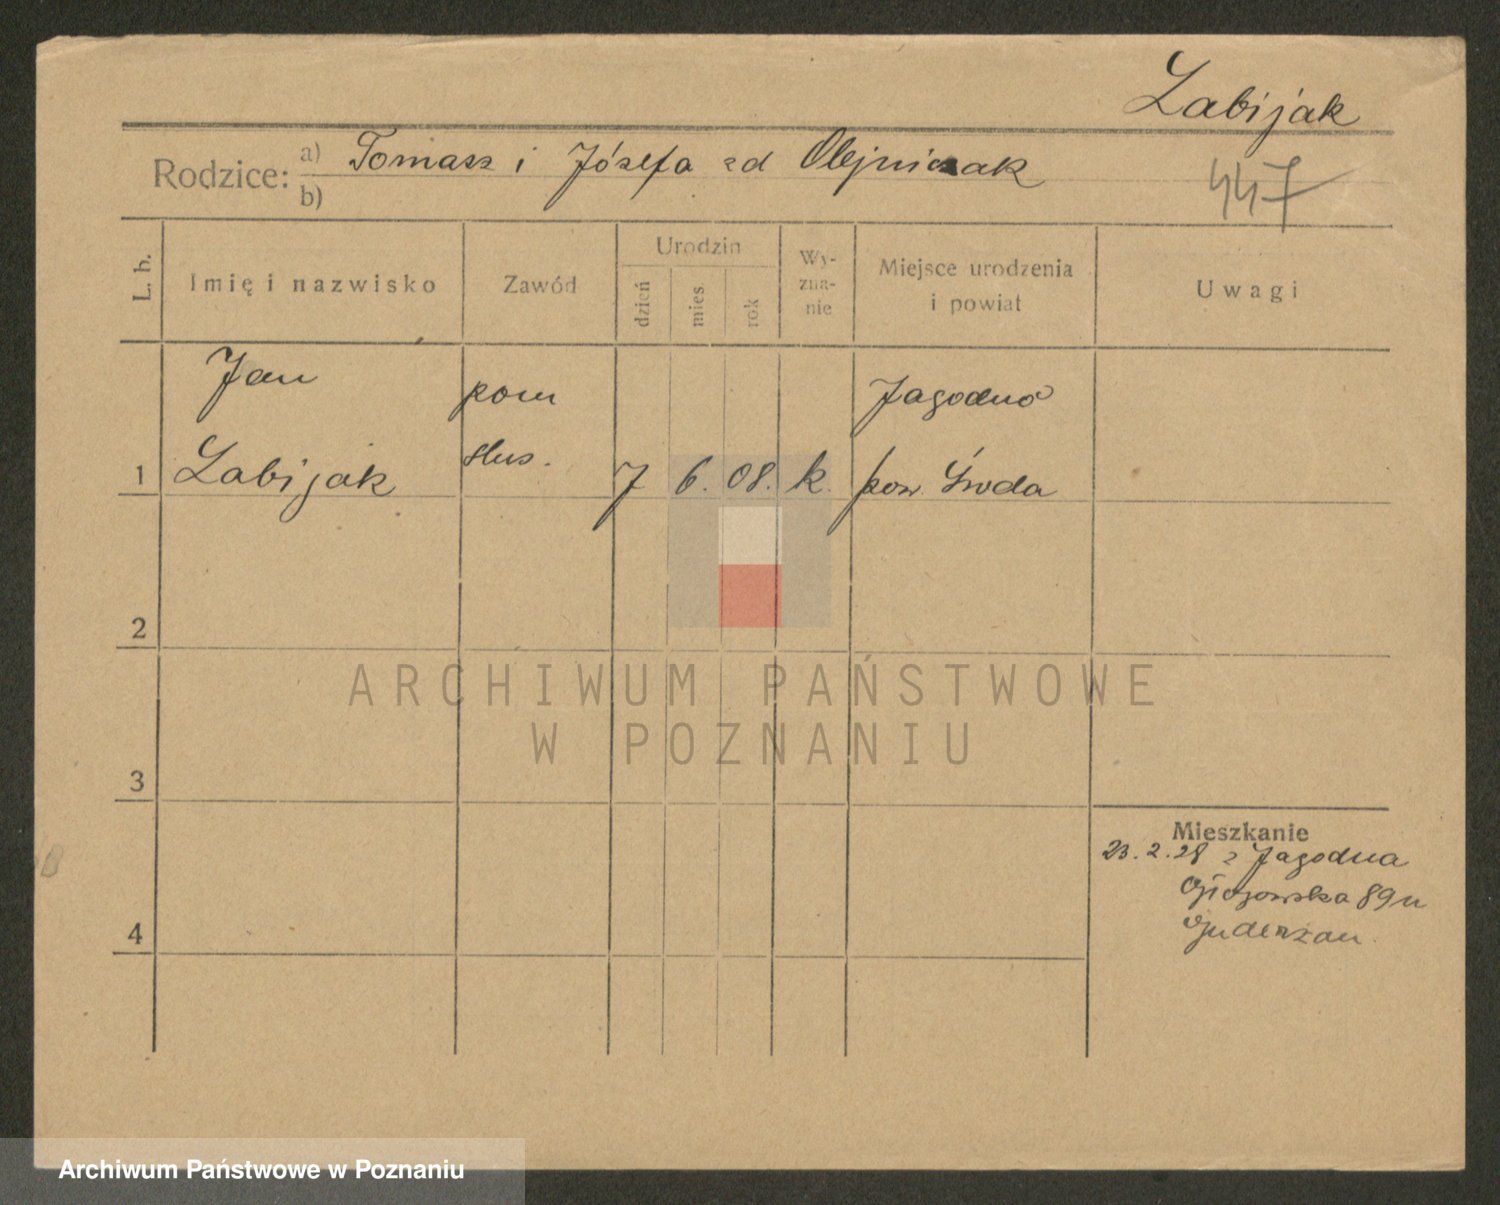 Labijak
Rodzice: a) Tomasz i Józefa zd Olejniczak
b)
447
L. b.
Imię i nazwisko
Zawód
Urodzin
dzień
mies
rok
Wy-
zna-
nie
Miejsce urodzenia
i powiat
Uwagi
Jan
pom
Jagodno
1 Labijak
slus.
7 6. 08. k. pow. Środa
2
3
4
Mieszkanie
23.2.28 z Jagodna
89
ARCHIWUM PAŃSTWOWE
W POZNANIU
Archiwum Państwowe w Poznaniu